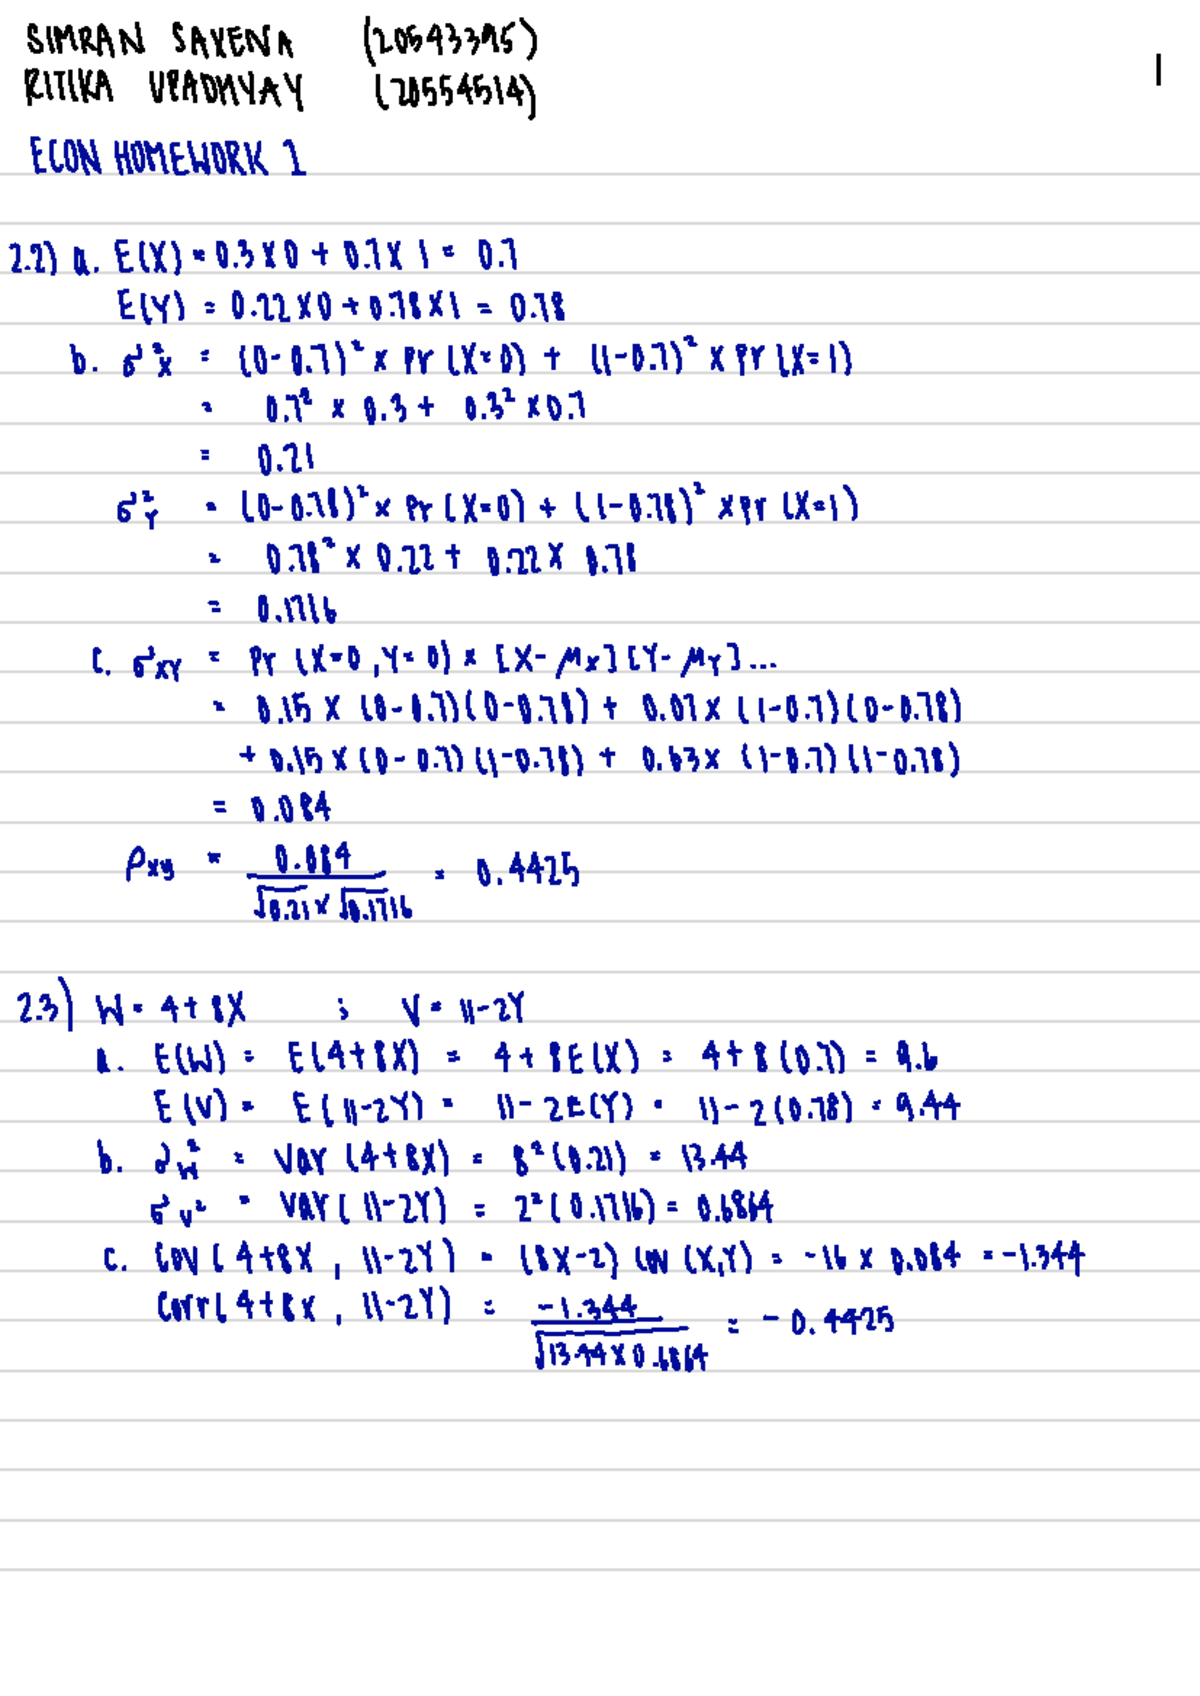 SIMRAN SAXENA (20543395)
RITIKA UPADHYAY (20554514)
1
ECON HOMEWORK 1
2.2) a. E(X) = 0.3 x 0 + 0.7 x 1 = 0.7
E(Y) = 0.22 x 0 + 0.78 x 1 = 0.78
b. σ²X = (0-0.7)² x Pr (X=0) + (1-0.7)² x Pr (X=1)
= 0.7² x 0.3 + 0.3² x 0.7
= 0.21
σ²Y = (0-0.78)² x Pr (X=0) + (1-0.78)² x Pr (X=1)
= 0.78² x 0.22 + 0.22 x 0.78
= 0.1716
c. σXY = Pr (X=0, Y=0) x [X-μX][Y-μY]...
= 0.15 x (0-0.7)(0-0.78) + 0.07 x (1-0.7)(0-0.78)
+ 0.15 x (0-0.7)(1-0.78) + 0.63 x (1-0.7)(1-0.78)
= 0.084
ρxy = 0.084 / √0.21 x √0.1716 = 0.4425
2.3) W = 4+8X ; V = 11-2Y
a. E(W) = E(4+8X) = 4+8E(X) = 4+8(0.7) = 9.6
E(V) = E(11-2Y) = 11-2E(Y) = 11-2(0.78) = 9.44
b. σ²W = Var (4+8X) = 8²(0.21) = 13.44
σV² = Var (11-2Y) = 2²(0.1716) = 0.6864
c. Cov (4+8X, 11-2Y) = (8x-2) Cov (X,Y) = -16 x 0.084 = -1.344
Corr(4+8X, 11-2Y) = -1.344 / √13.44 x 0.6864 = -0.4425